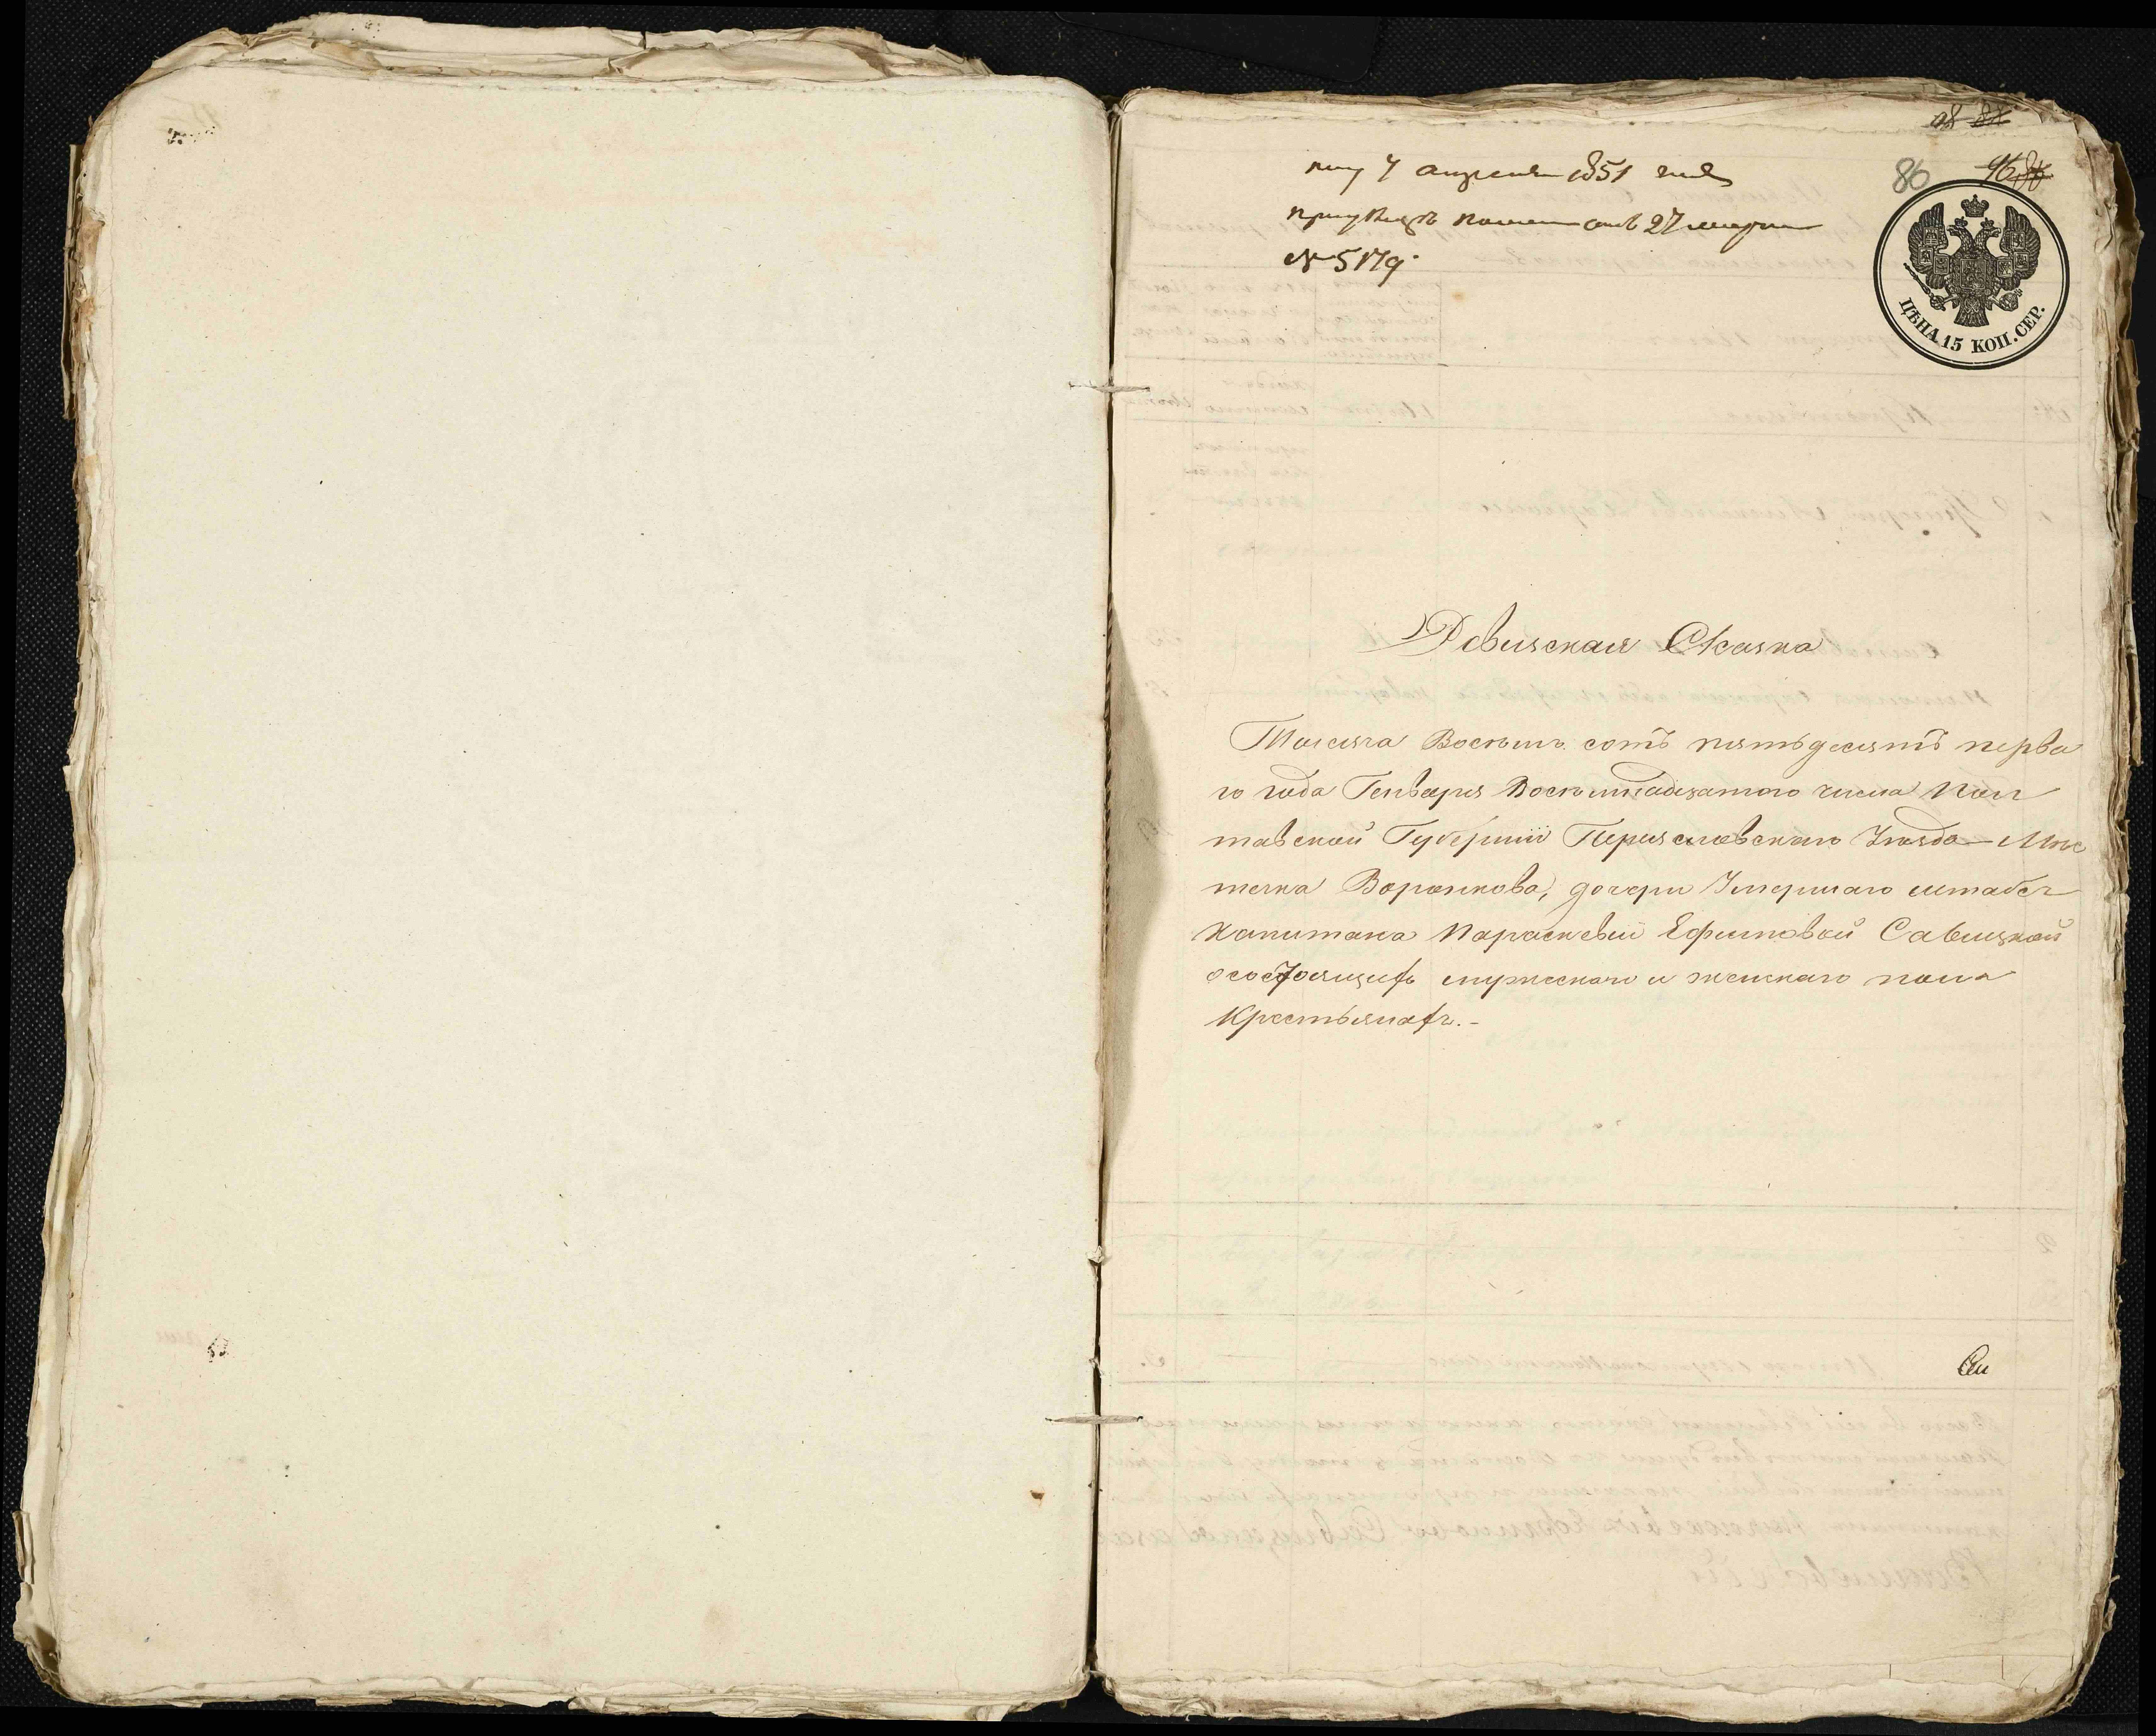 86
7 апреля 1851 года
27 марта
№ 5179.
ЦѢНА 15 КОП. СЕР.
Ревизская Сказка
Тысяча Восемь сотъ пятьдесятъ перва
го года Генваря Восемнадцатого числа Пол
тавской Губернии Переяславского Уезда Мѣс
течка Воронкова, дочери Умершаго штабсъ
Капитана Параскевии Ефимовой Савицкой
о состоящихъ мужескаго и женскаго пола
Крестьянахъ.-